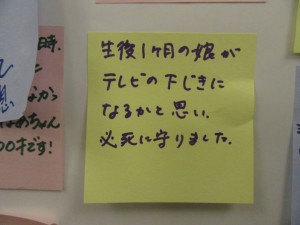 生後1ヶ月の娘が
テレビの下じきに
なるかと思い、
必死に守りました。
時.
に
なかっ
ばあちゃん
00才です!
想